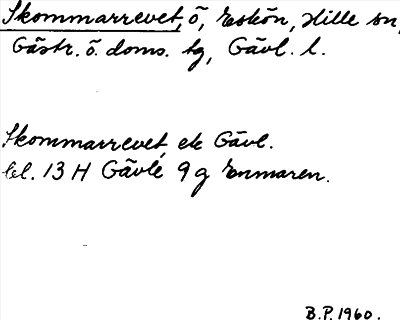 Skommarrevet, ö, Eskön, Hille sn,
Gästr. ö. doms. tg, Gävl. l.
Skommarrevet, ek Gävl.
bl. 13 H Gävle 9 g Enmaren.
B.P. 1960.